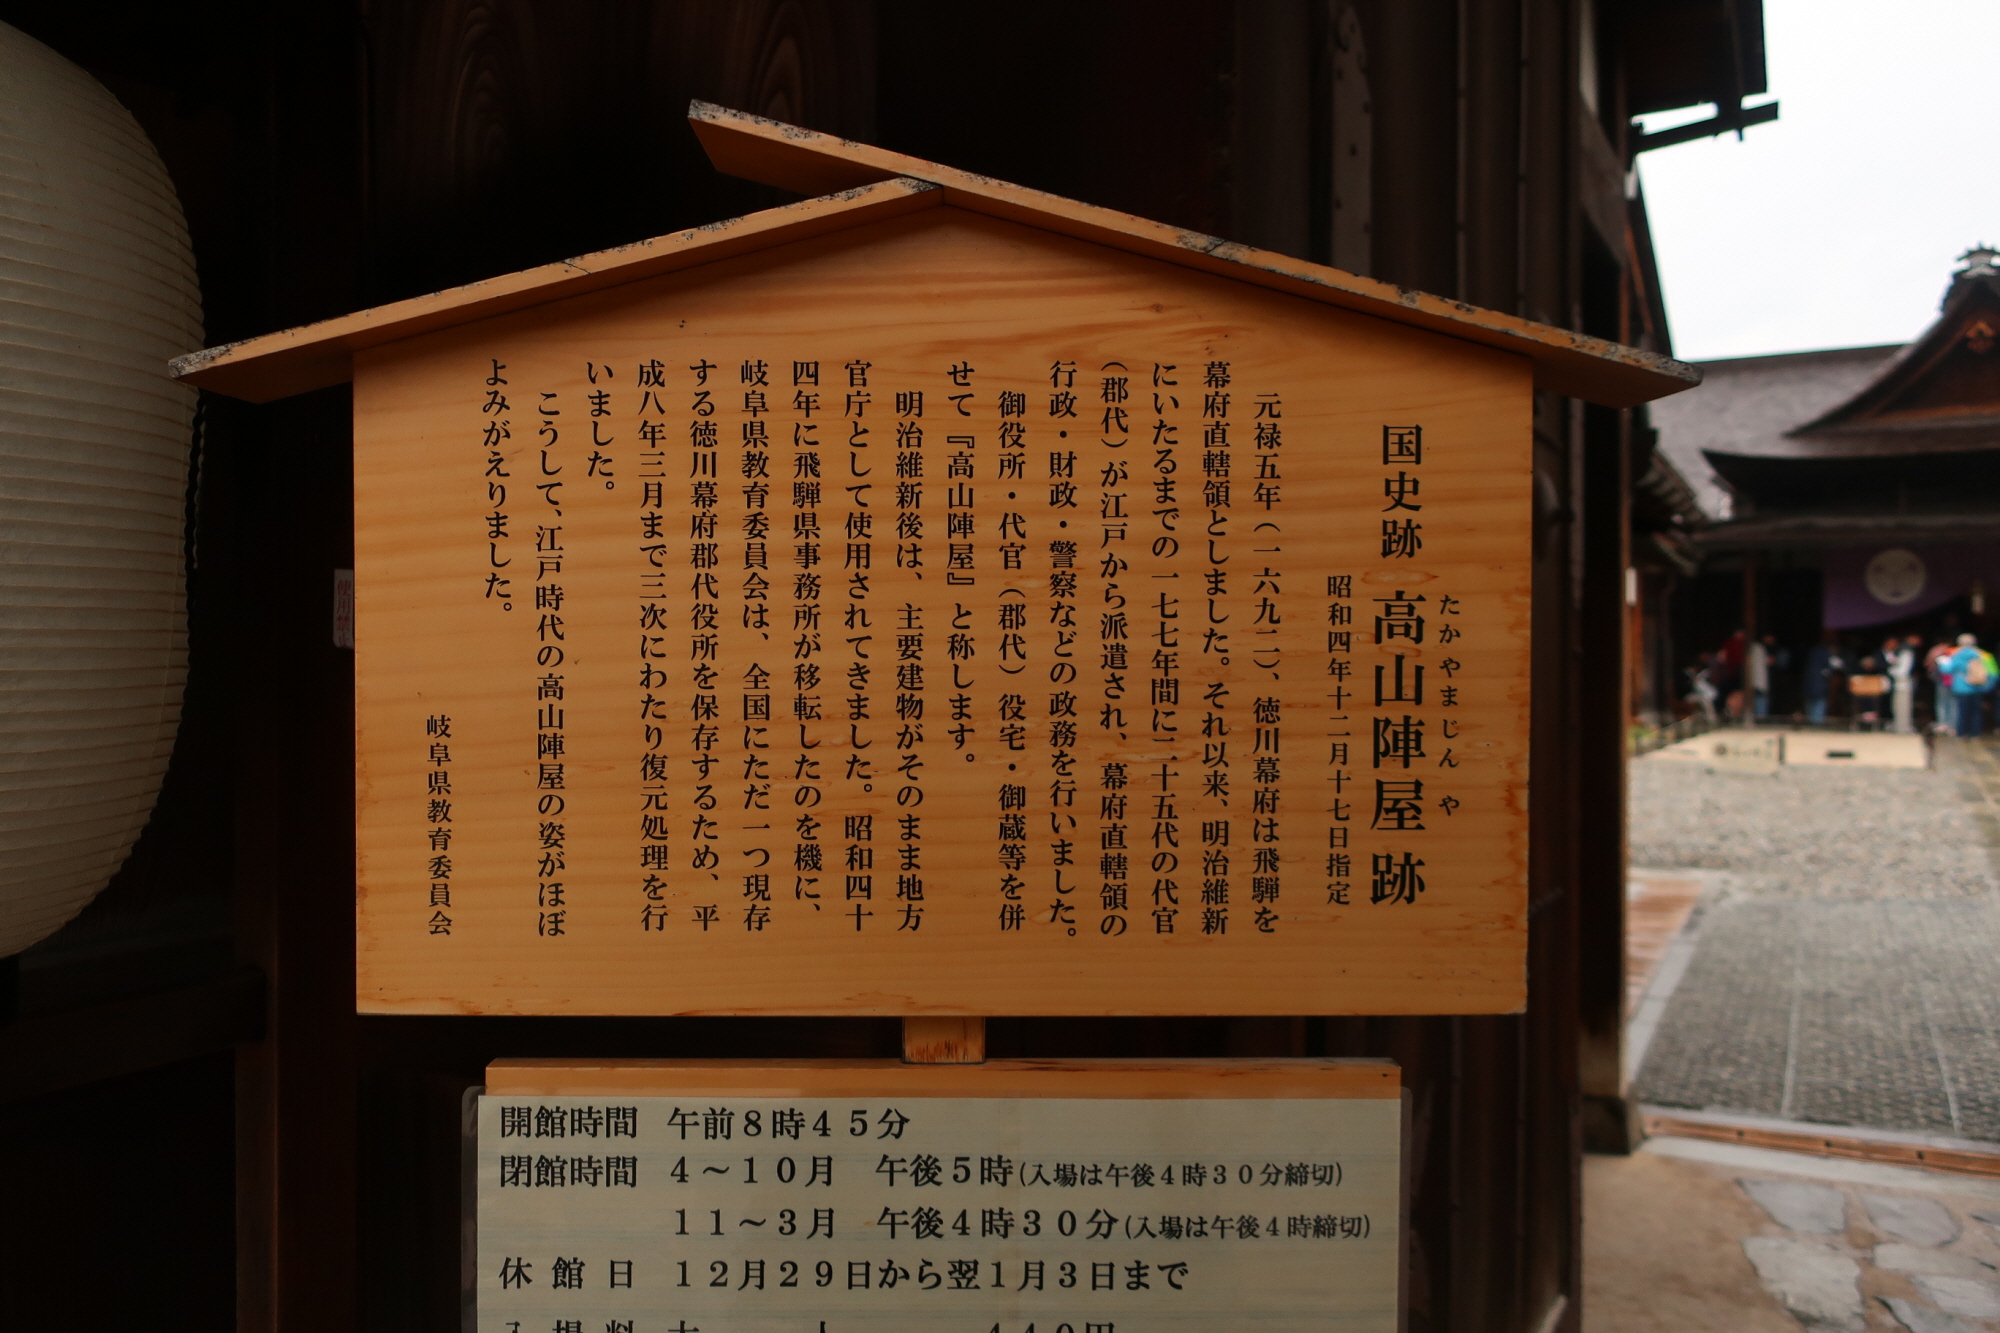 国史跡 高山陣屋跡
たかやまじんや
昭和四年十二月十七日指定
元禄五年（一六九二）、徳川幕府は飛騨を
幕府直轄領としました。それ以来、明治維新
にいたるまでの一七七年間に二十五代の代官
（郡代）が江戸から派遣され、幕府直轄領の
行政・財政・警察などの政務を行いました。
御役所・代官（郡代）役宅・御蔵等を併
せて『高山陣屋』と称します。
明治維新後は、主要建物がそのまま地方
官庁として使用されてきました。昭和四十
四年に飛騨県事務所が移転したのを機に、
岐阜県教育委員会は、全国にただ一つ現存
する徳川幕府郡代役所を保存するため、平
成八年三月まで三次にわたり復元処理を行
いました。
こうして、江戸時代の高山陣屋の姿がほぼ
よみがえりました。
岐阜県教育委員会
開館時間 午前８時４５分
閉館時間 ４～１０月 午後５時(入場は午後４時３０分締切)
１１～３月 午後４時３０分(入場は午後４時締切)
休館日 １２月２９日から翌１月３日まで
使用禁止